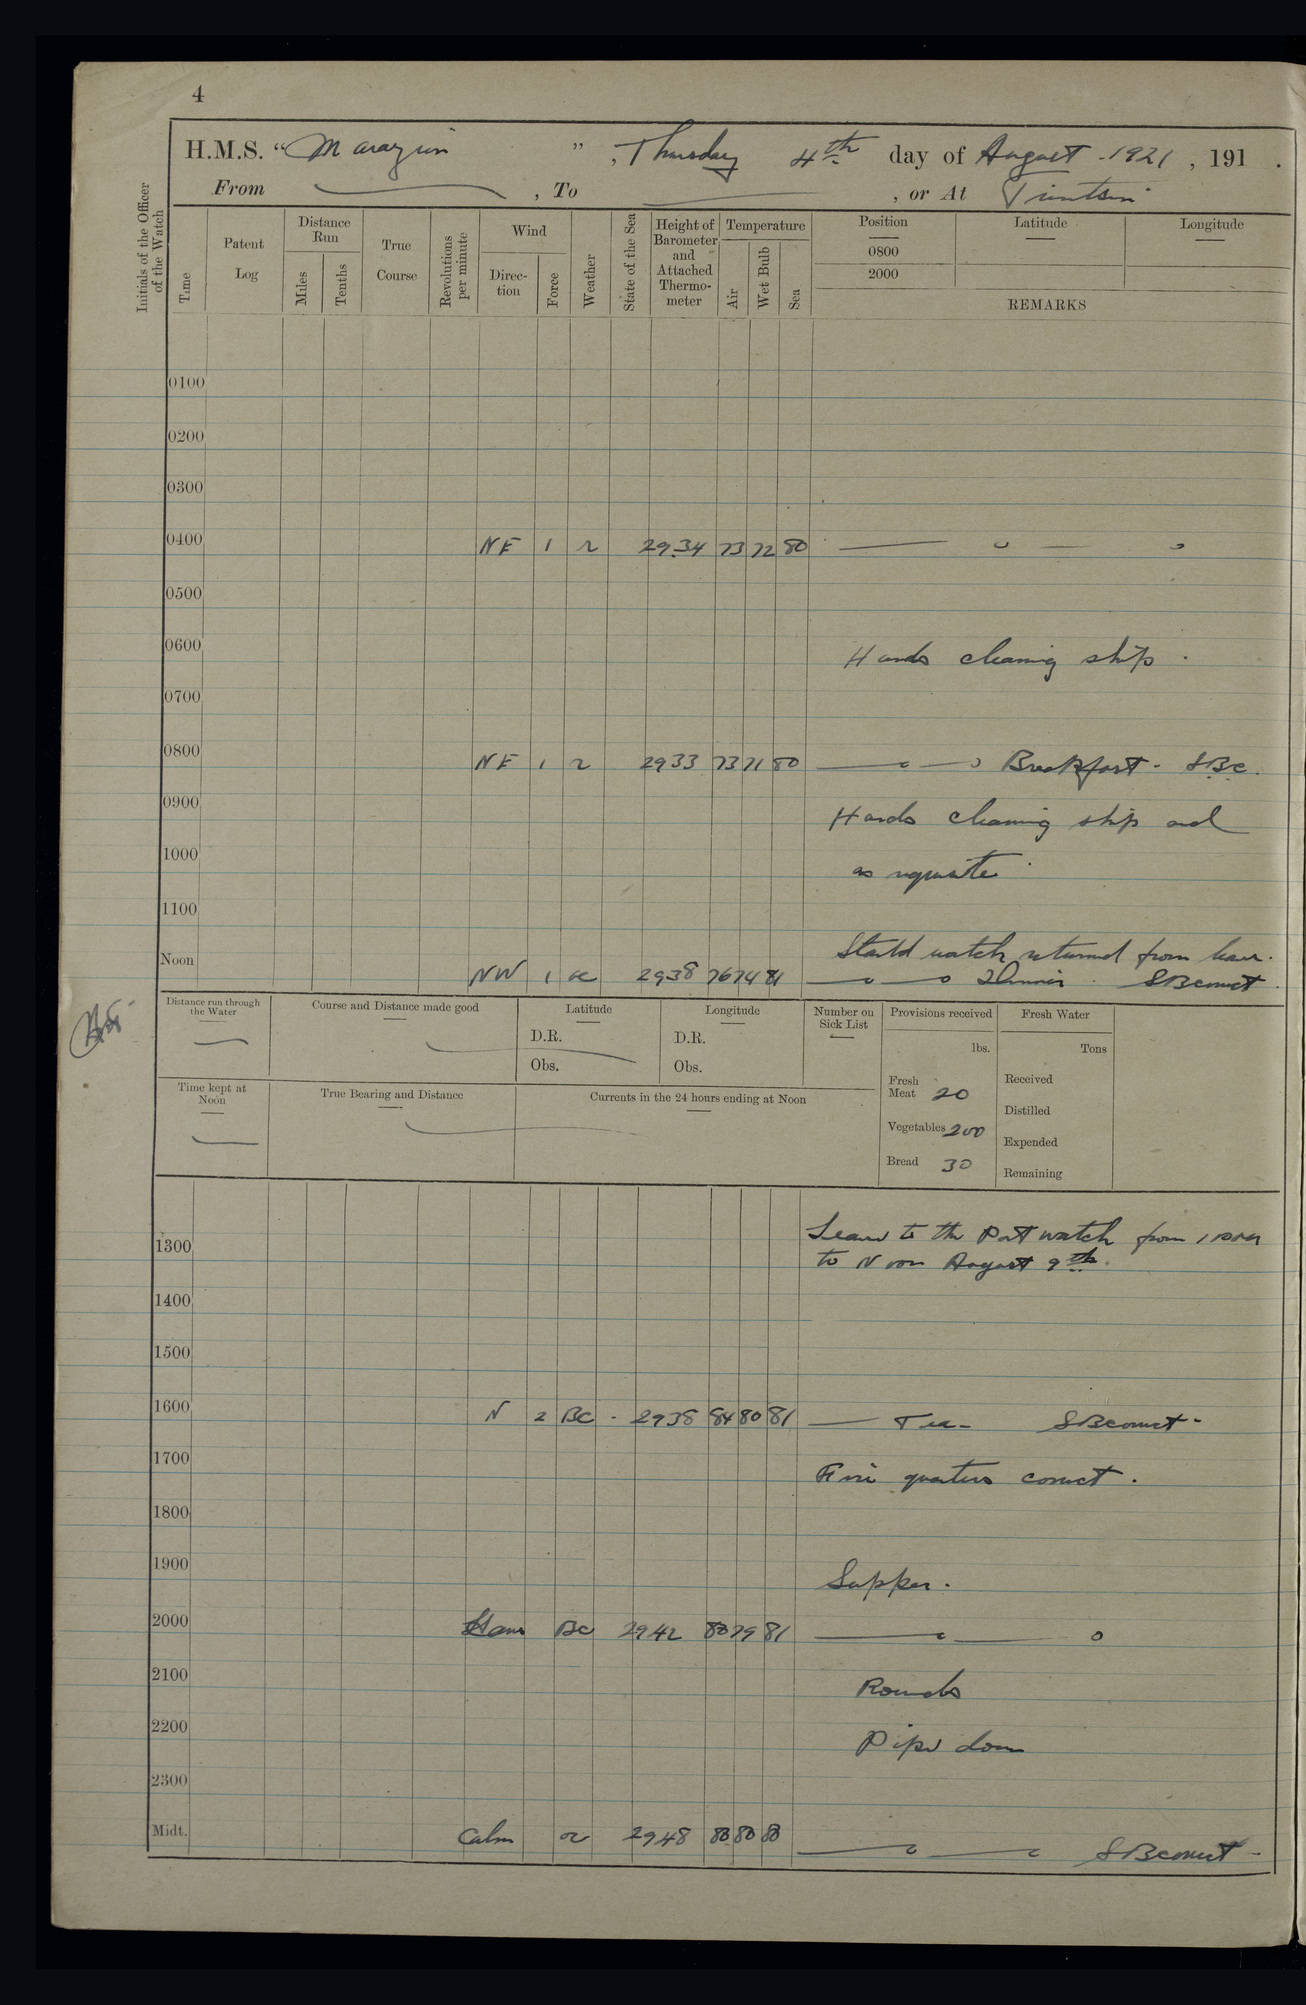 4
H.M.S. "Marazion", Thursday 4th day of August 1921, 191 .
From , To , or At Tientsin
Initials of the Officer of the Watch
Time
Patent Log
Distance Run
Miles
Tenths
True Course
Revolutions per minute
Wind
Direction
Force
Weather
State of the Sea
Height of Barometer and Attached Thermometer
Temperature
Air
Wet Bulb
Sea
Position
0800
2000
Latitude
Longitude
REMARKS
0100
0200
0300
0400 NE 1 r 29.34 73 72 80
0500
0600 Hands cleaning ship.
0700
0800 NE 1 r 2933 73 71 80 Breakfast. SBC.
0900 Hands cleaning ship and
1000 as requisite.
1100
Starbd watch returned from leave.
Noon NW 1 2938 76 74 81 Dinner.
Distance run through the Water
Course and Distance made good
Latitude
D.R.
Obs.
Longitude
D.R.
Obs.
Number on Sick List
Provisions received
lbs.
Fresh Meat 20
Vegetables 200
Bread 30
Fresh Water
Tons
Received
Distilled
Expended
Remaining
Time kept at Noon
True Bearing and Distance
Currents in the 24 hours ending at Noon
Leave to the Port watch from 1 PM
1300 to Noon August 9th.
1400
1500
1600 N 2 BC - 2938 84 80 81 Tea -
1700 Fire quarters correct.
1800
1900 Supper.
2000 BC 2942 80 79 81
2100 Rounds
2200 Pipe down
2300
Midt. Calm 2948 80 80 80